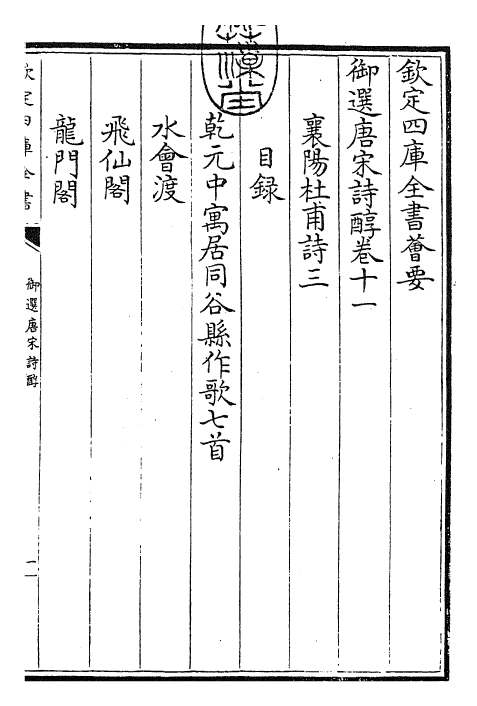 欽定四庫全書薈要
御選唐宋詩醇卷十一
襄陽杜甫詩三
目録
乾元中寓居同谷縣作歌七首
水會渡
飛仙閣
龍門閣
欽定四庫全書
御選唐宋詩醇